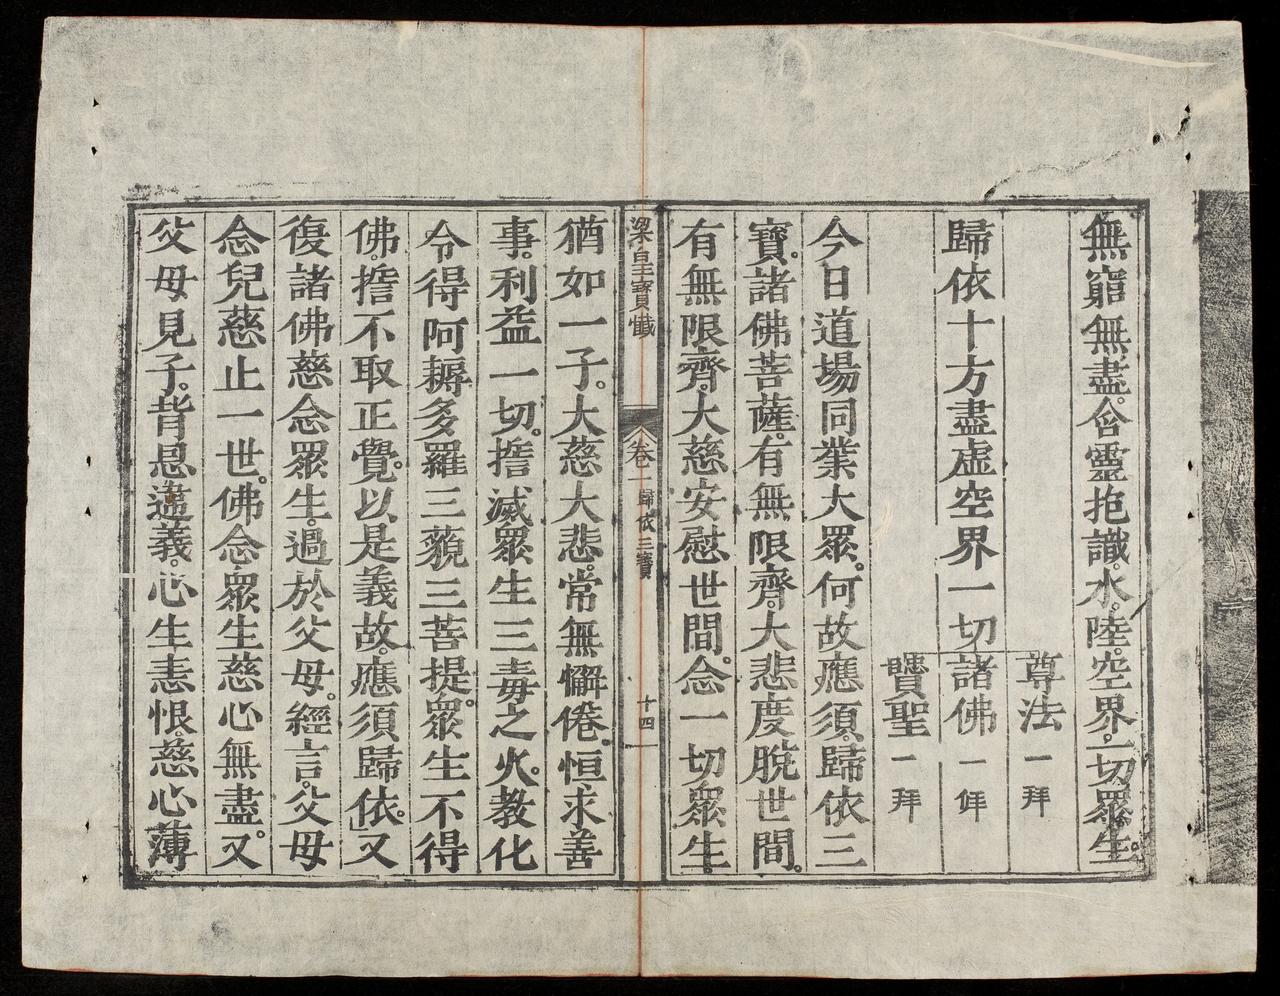 無窮無盡。含靈抱識。水。陸。空界。一切眾生。
尊法一拜
歸依十方盡虛空界一切諸佛一拜
賢聖一拜
今日道場同業大眾。何故應須。歸依三
寶。諸佛菩薩。有無限齊。大悲度脫世間。
有無限齊。大慈安慰世間。念一切眾生。
梁皇寶懺 卷一 歸依三寶 十四
猶如一子。大慈大悲。常無懈倦。恒求善
事。利益一切。誓滅眾生三毒之火。教化
令得阿耨多羅三藐三菩提。眾生不得
佛。誓不取正覺。以是義故。應須歸依。又
復諸佛慈念眾生。過於父母。經言。父母
念兒慈止一世。佛念眾生慈心無盡。又
父母見子。背恩違義。心生恚恨。慈心薄